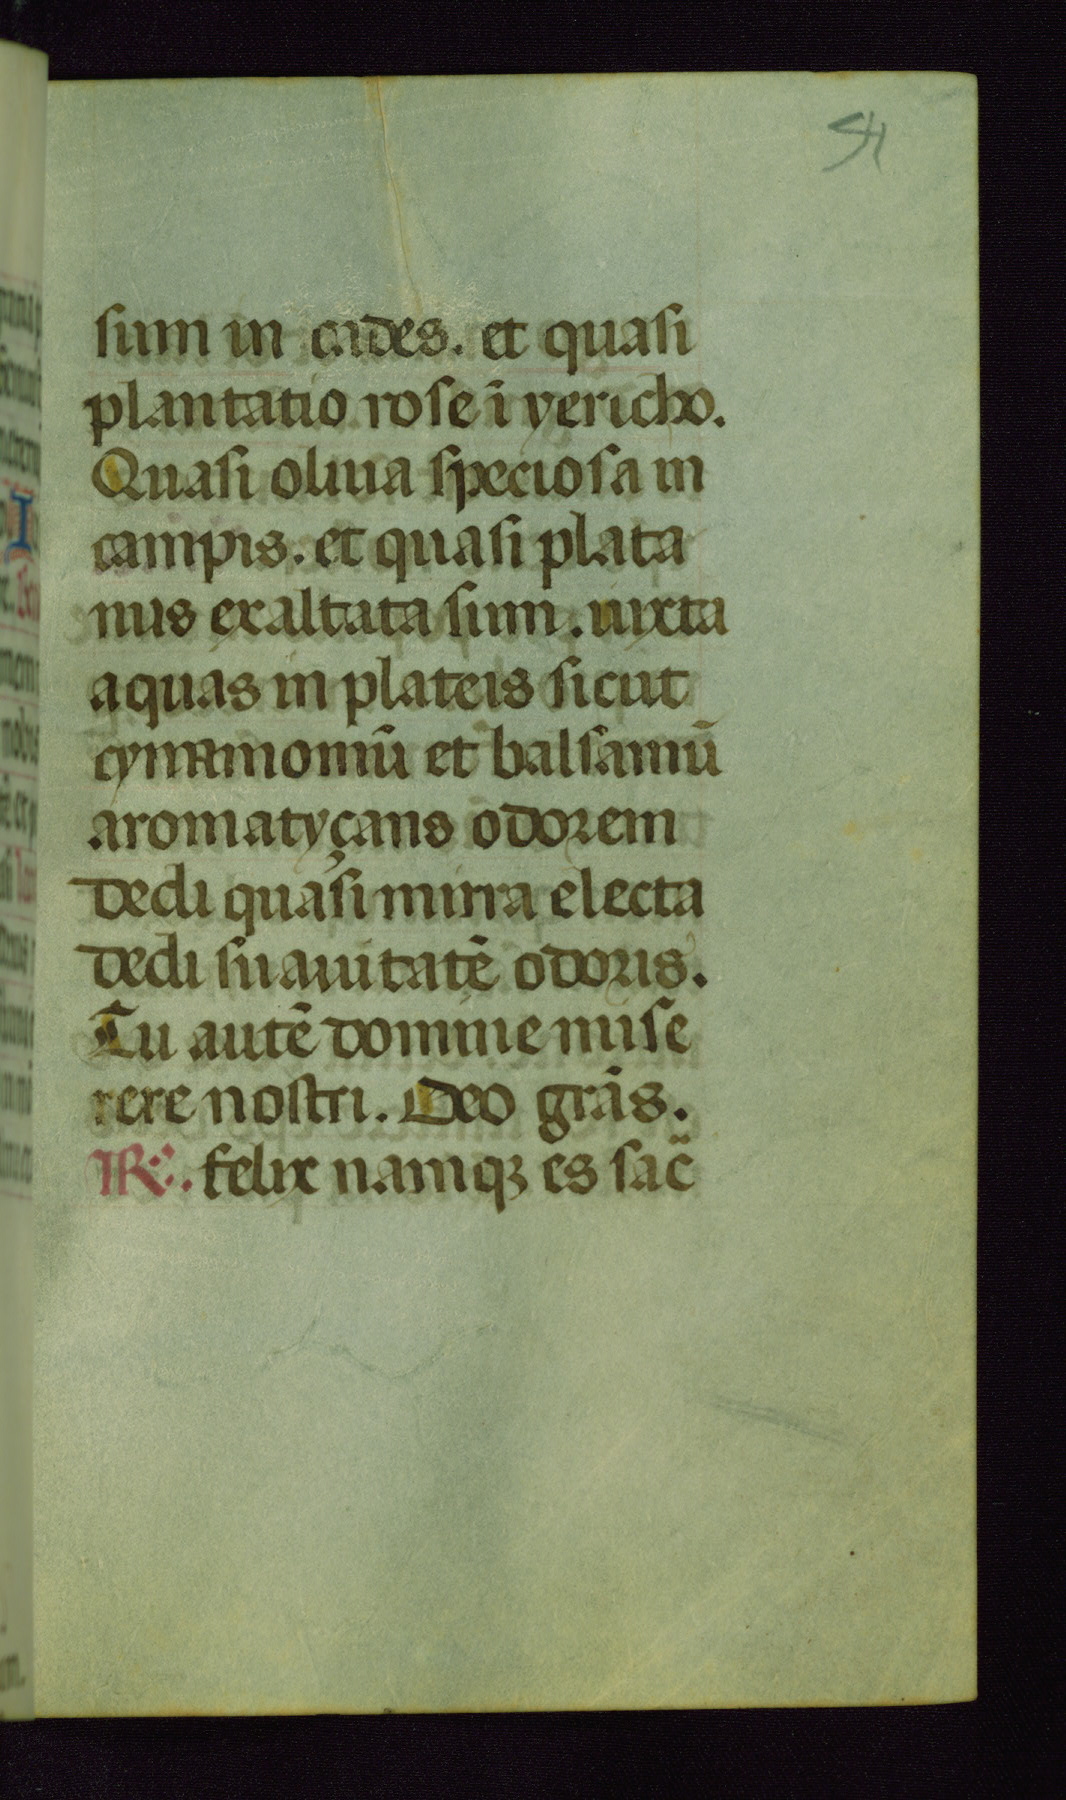 54
sum in cades. et quasi
plantatio rose ī yericho.
Quasi oliua speciosa in
campis. et quasi plata
nus exaltata sum. iuxta
aquas in plateis sicut
cynamomū et balsamū
aromatyçans odorem
dedi quasi mirra electa
dedi suauitatē odoris.
Tu autē domine mise
rere nostri. Deo grās.
R. felix namqꝫ es sac̄